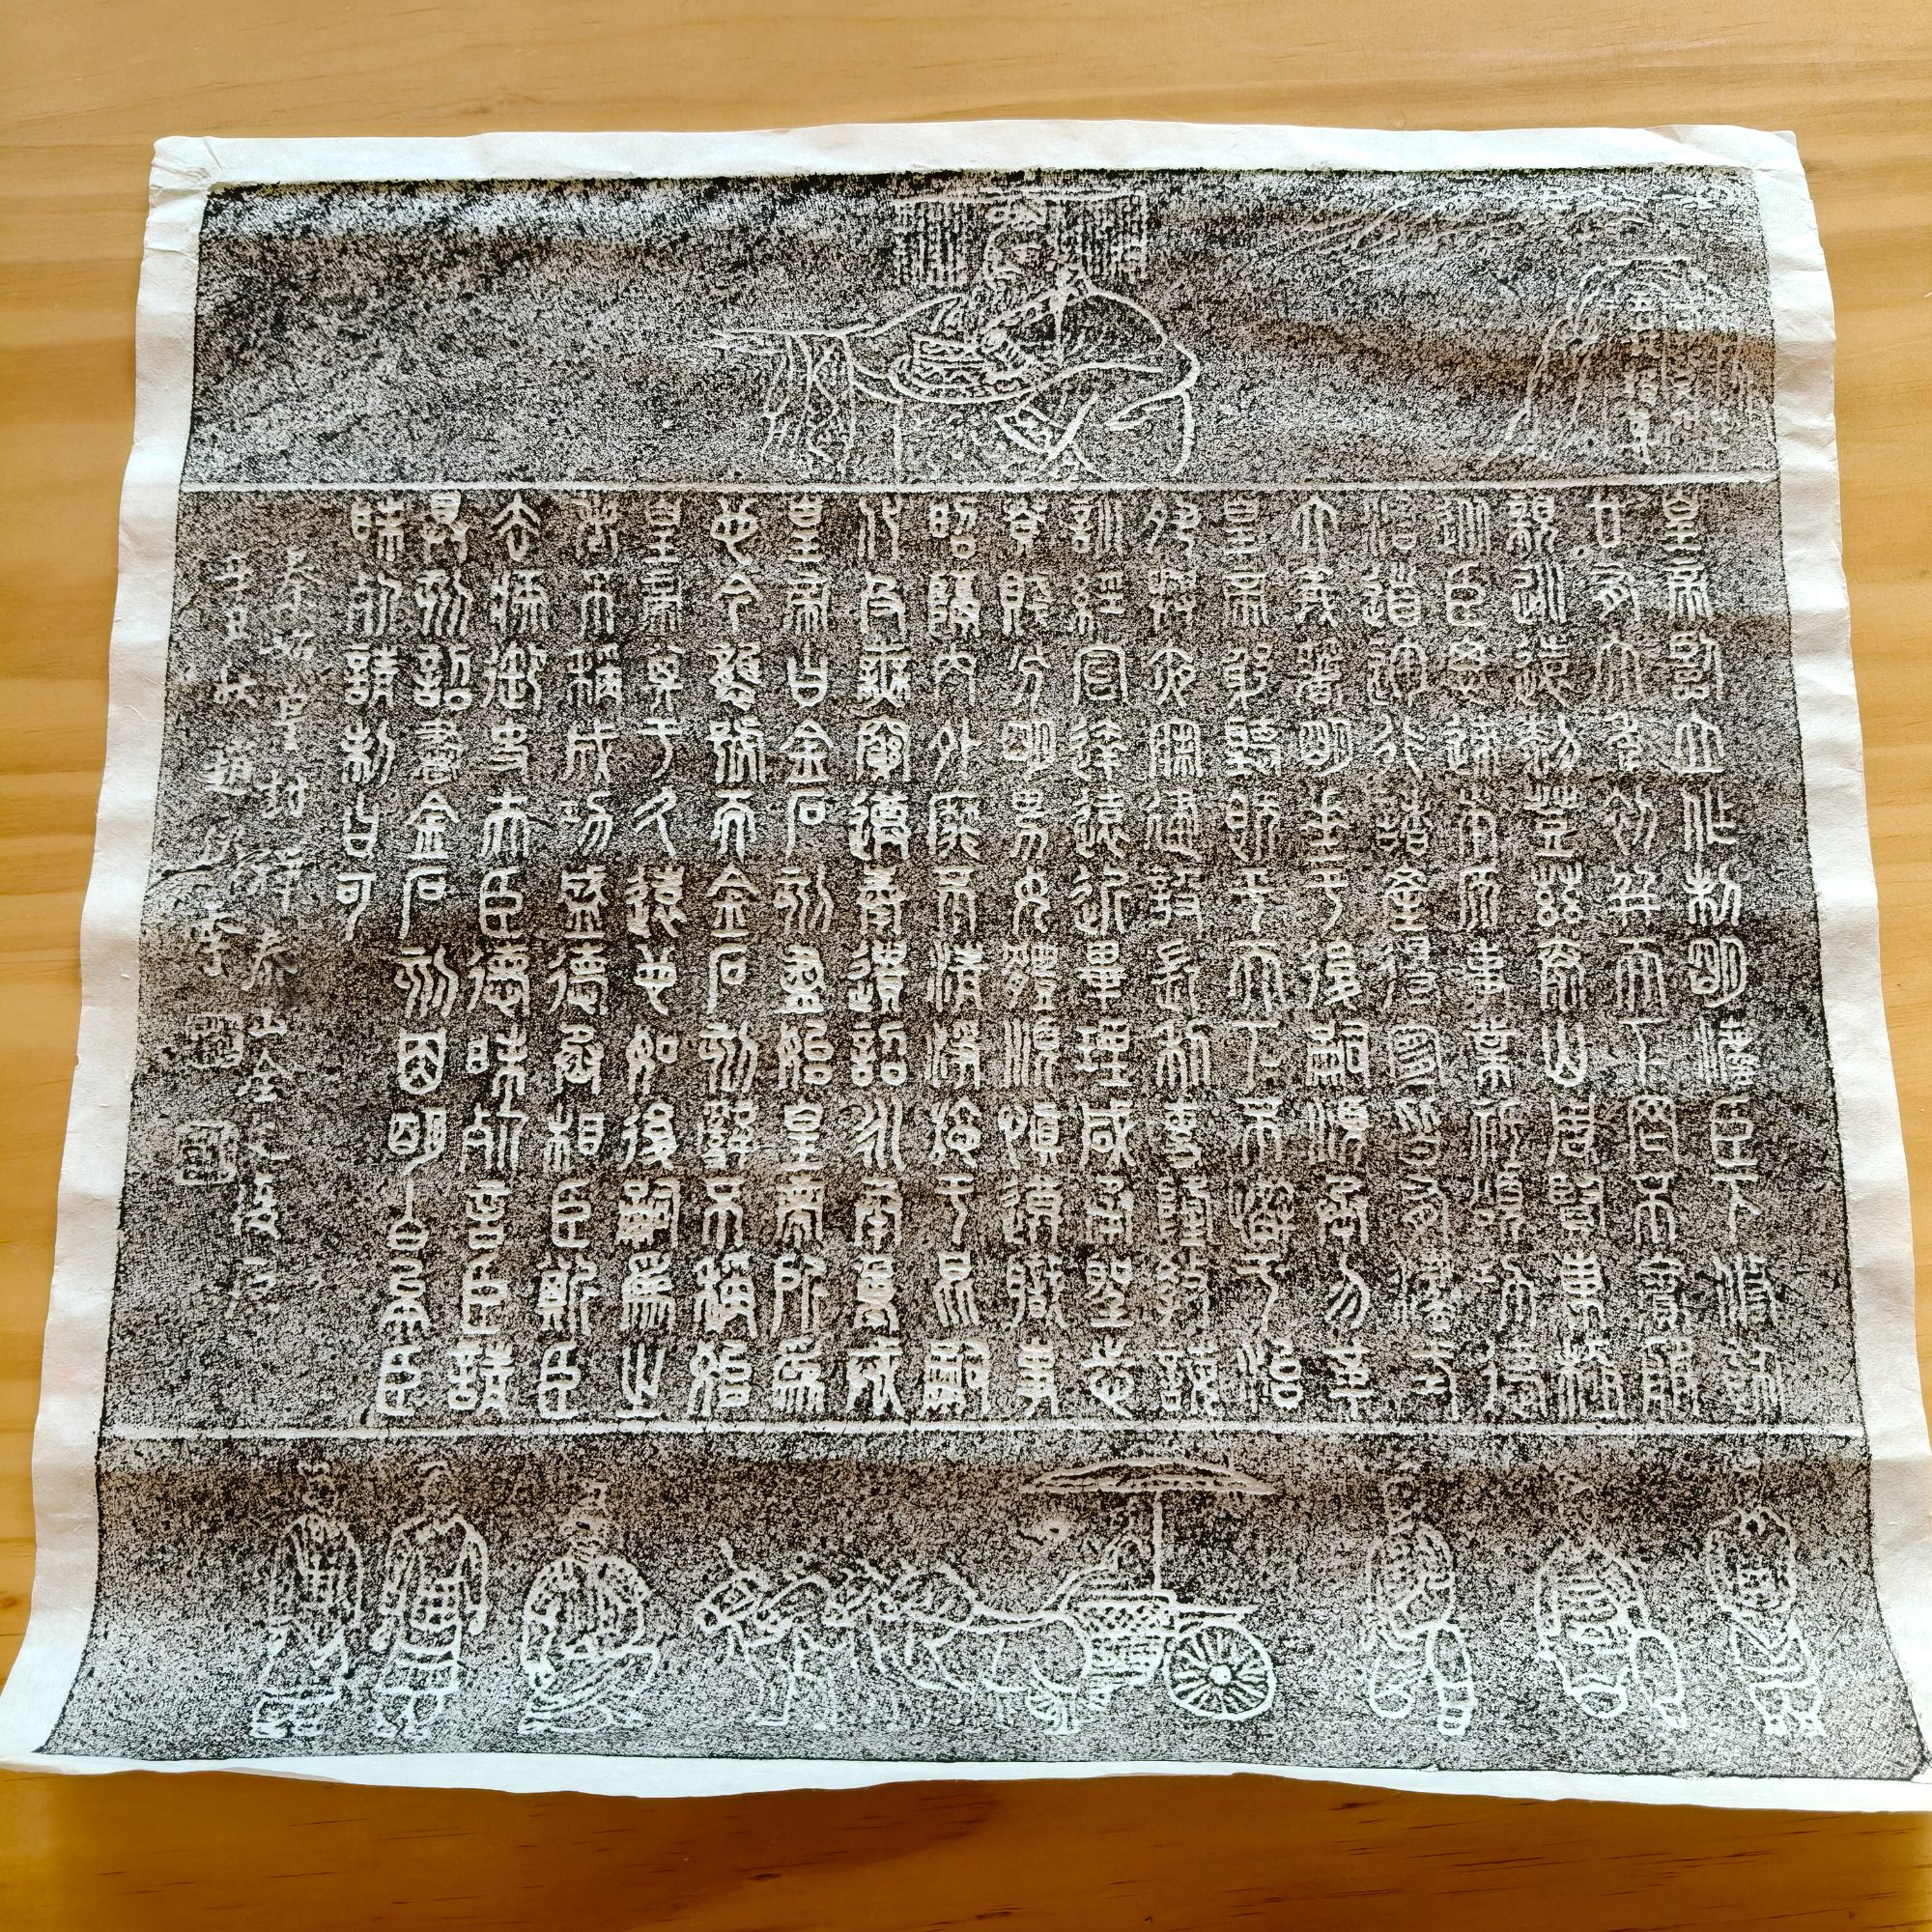 皇帝臨立作制明法臣下脩飭
廿有六年初并天下罔不賓服
親巡遠黎登茲泰山周覽東極
從臣思迹本原事業祗誦功德
治道運行諸產得宜皆有法式
大義箸明垂于後嗣順承勿革
皇帝躬聽既平天下不懈于治
夙興夜寐建設長利專隆教誨
訓經宣達遠近畢理咸承聖志
貴賤分明男女體順慎遵職事
昭隔內外靡不清淨施于昆嗣
化及無窮遵奉遺詔永承重戒
皇帝曰金石刻盡始皇帝所為
也今襲號而金石刻辭不稱始
皇帝其于久遠也如後嗣為之
者不稱成功盛德丞相臣斯臣
去疾御史夫臣德昧死言臣請
具刻詔書金石刻因明白矣臣
昧死請制曰可
秦始皇封禪泰山全文